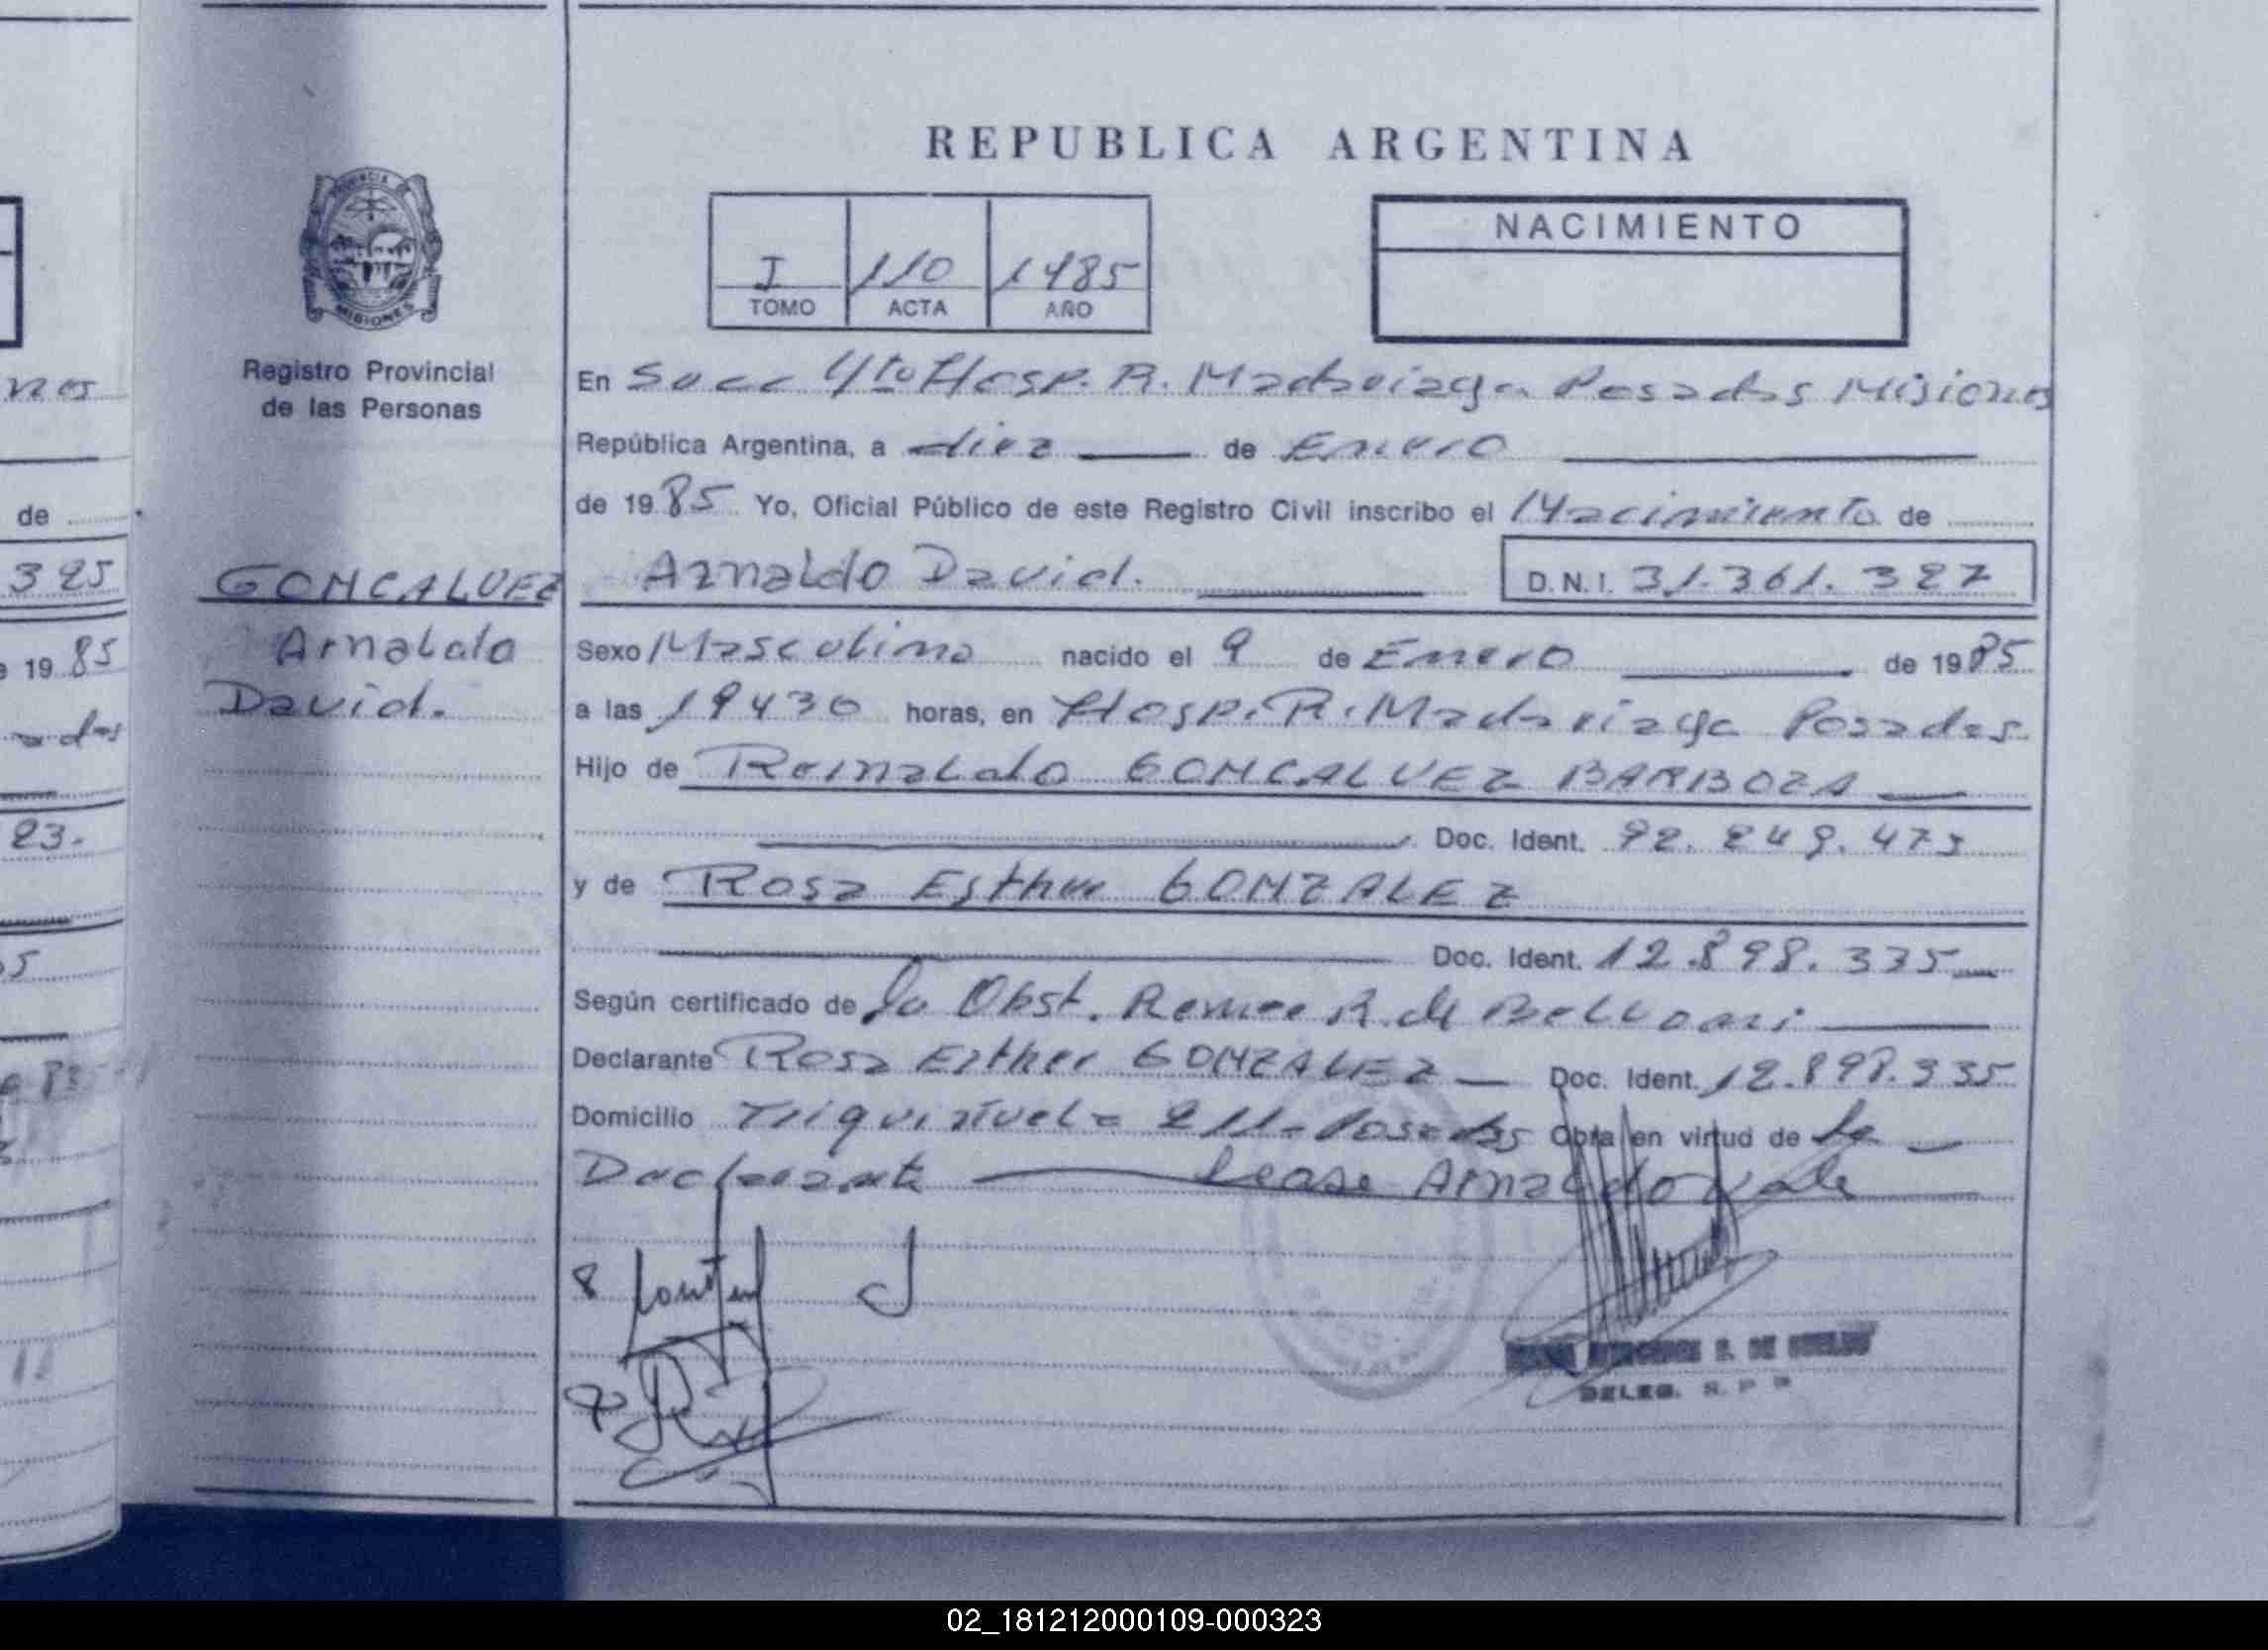 REPUBLICA ARGENTINA
PROVINCIA DE
MISIONES
I 110 1985
TOMO ACTA AÑO
NACIMIENTO
Registro Provincial
de las Personas
nes
En Succ 4to Hosp. R. Madariaga Posadas Misiones
República Argentina, a diez de Enero
de
de 1985 Yo, Oficial Público de este Registro Civil inscribo el Nacimiento de
325
GONCALVEZ Arnaldo David. D.N.I. 31.361.327
Arnalalo
David.
19 85
Sexo Masculino nacido el 9 de Enero de 1985
a las 19y30 horas, en Hosp. R. Madariaga Posadas
Hijo de Reinaldo GONCALVEZ BARBOZA
23.
Doc. Ident. 92.249.473
y de Rosa Esther GONZALEZ
Doc. Ident. 12.898.335
Según certificado de la Obst. Renee R. de
Declarante Rosa Esther GONZALEZ Doc. Ident. 12.898.335
Domicilio 211 - Posadas Obra en virtud de la
Declarante Lease Arnaldo Vale
S. DE
DELEG. R. P. P
02_181212000109-000323